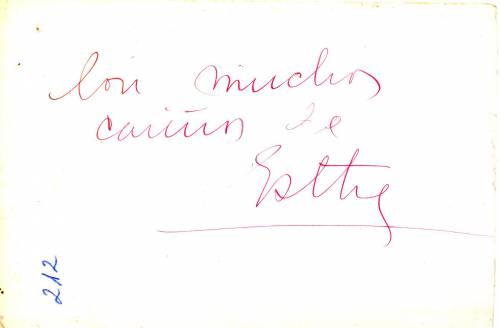 Con muchos
cariños de
Esther
212